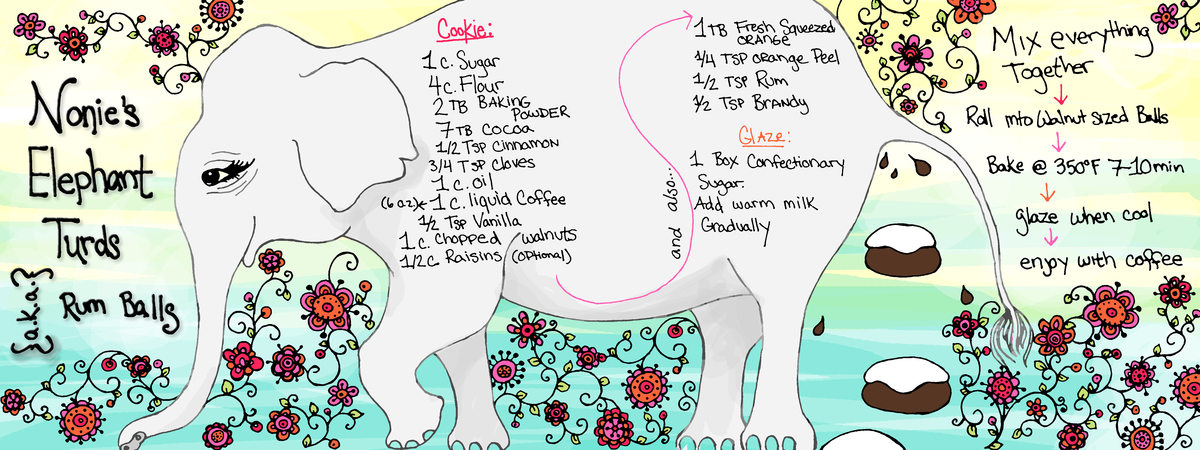 Nonie's
Elephant
Turds
{a.k.a.}
Rum Balls
Cookie:
1 c. Sugar
4 c. Flour
2 TB BAKING
POWDER
7 TB COCOA
1/2 TSP Cinnamon
3/4 TSP Cloves
1 c. oil
(6 oz)← 1 c. liquid Coffee
1/2 Tsp Vanilla
1 c. Chopped Walnuts
1/2 c Raisins (OPtional)
and also...
1 TB Fresh Squeezed
ORANGE
1/4 TSP ORange Peel
1/2 TSP Rum
1/2 TSP BRANDY
GLAZE:
1 Box Confectionary
Sugar.
Add warm milk
Gradually
Mix everything
Together
Roll into Walnut Sized Balls
Bake @ 350°F 7-10 min
glaze when cool
enjoy with coffee